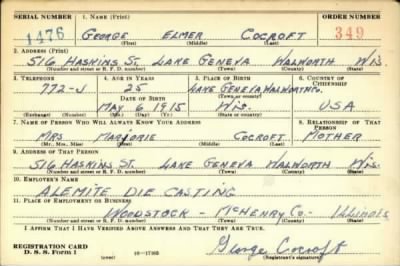 SERIAL NUMBER 1. NAME (Print) ORDER NUMBER
1476 GEORGE ELMER COCROFT 349
(First) (Middle) (Last)
2. ADDRESS (Print)
516 HASKINS ST. LAKE GENEVA WALWORTH WIS.
(Number and street or R. F. D. number) (Town) (County) (State)
3. TELEPHONE 4. AGE IN YEARS 5. PLACE OF BIRTH 6. COUNTRY OF CITIZENSHIP
772-J 25 LAKE GENEVA, WALWORTH CO.
DATE OF BIRTH (Town or county)
MAY 6 1915 WIS. USA
(Exchange) (Number) (Mo.) (Day) (Yr.) (State or country)
7. NAME OF PERSON WHO WILL ALWAYS KNOW YOUR ADDRESS 8. RELATIONSHIP OF THAT PERSON
MRS. MARJORIE COCROFT MOTHER
(Mr., Mrs., Miss) (First) (Middle) (Last)
9. ADDRESS OF THAT PERSON
516 HASKINS ST. LAKE GENEVA WALWORTH WIS.
(Number and street or R. F. D. number) (Town) (County) (State)
10. EMPLOYER'S NAME
ALEMITE DIE CASTING
11. PLACE OF EMPLOYMENT OR BUSINESS
WOODSTOCK - MCHENRY CO. - ILLINOIS
(Number and street or R. F. D. number) (Town) (County) (State)
I AFFIRM THAT I HAVE VERIFIED ABOVE ANSWERS AND THAT THEY ARE TRUE.
REGISTRATION CARD George Cocroft
D. S. S. Form 1 (Registrant's signature)